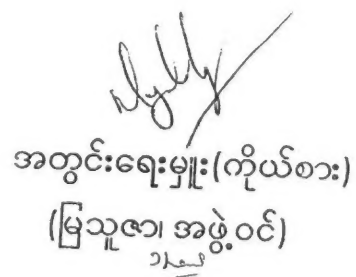 အတွင်းရေးမှူး(ကိုယ်စား)
(မြသူဇာ၊ အဖွဲ့ဝင်)